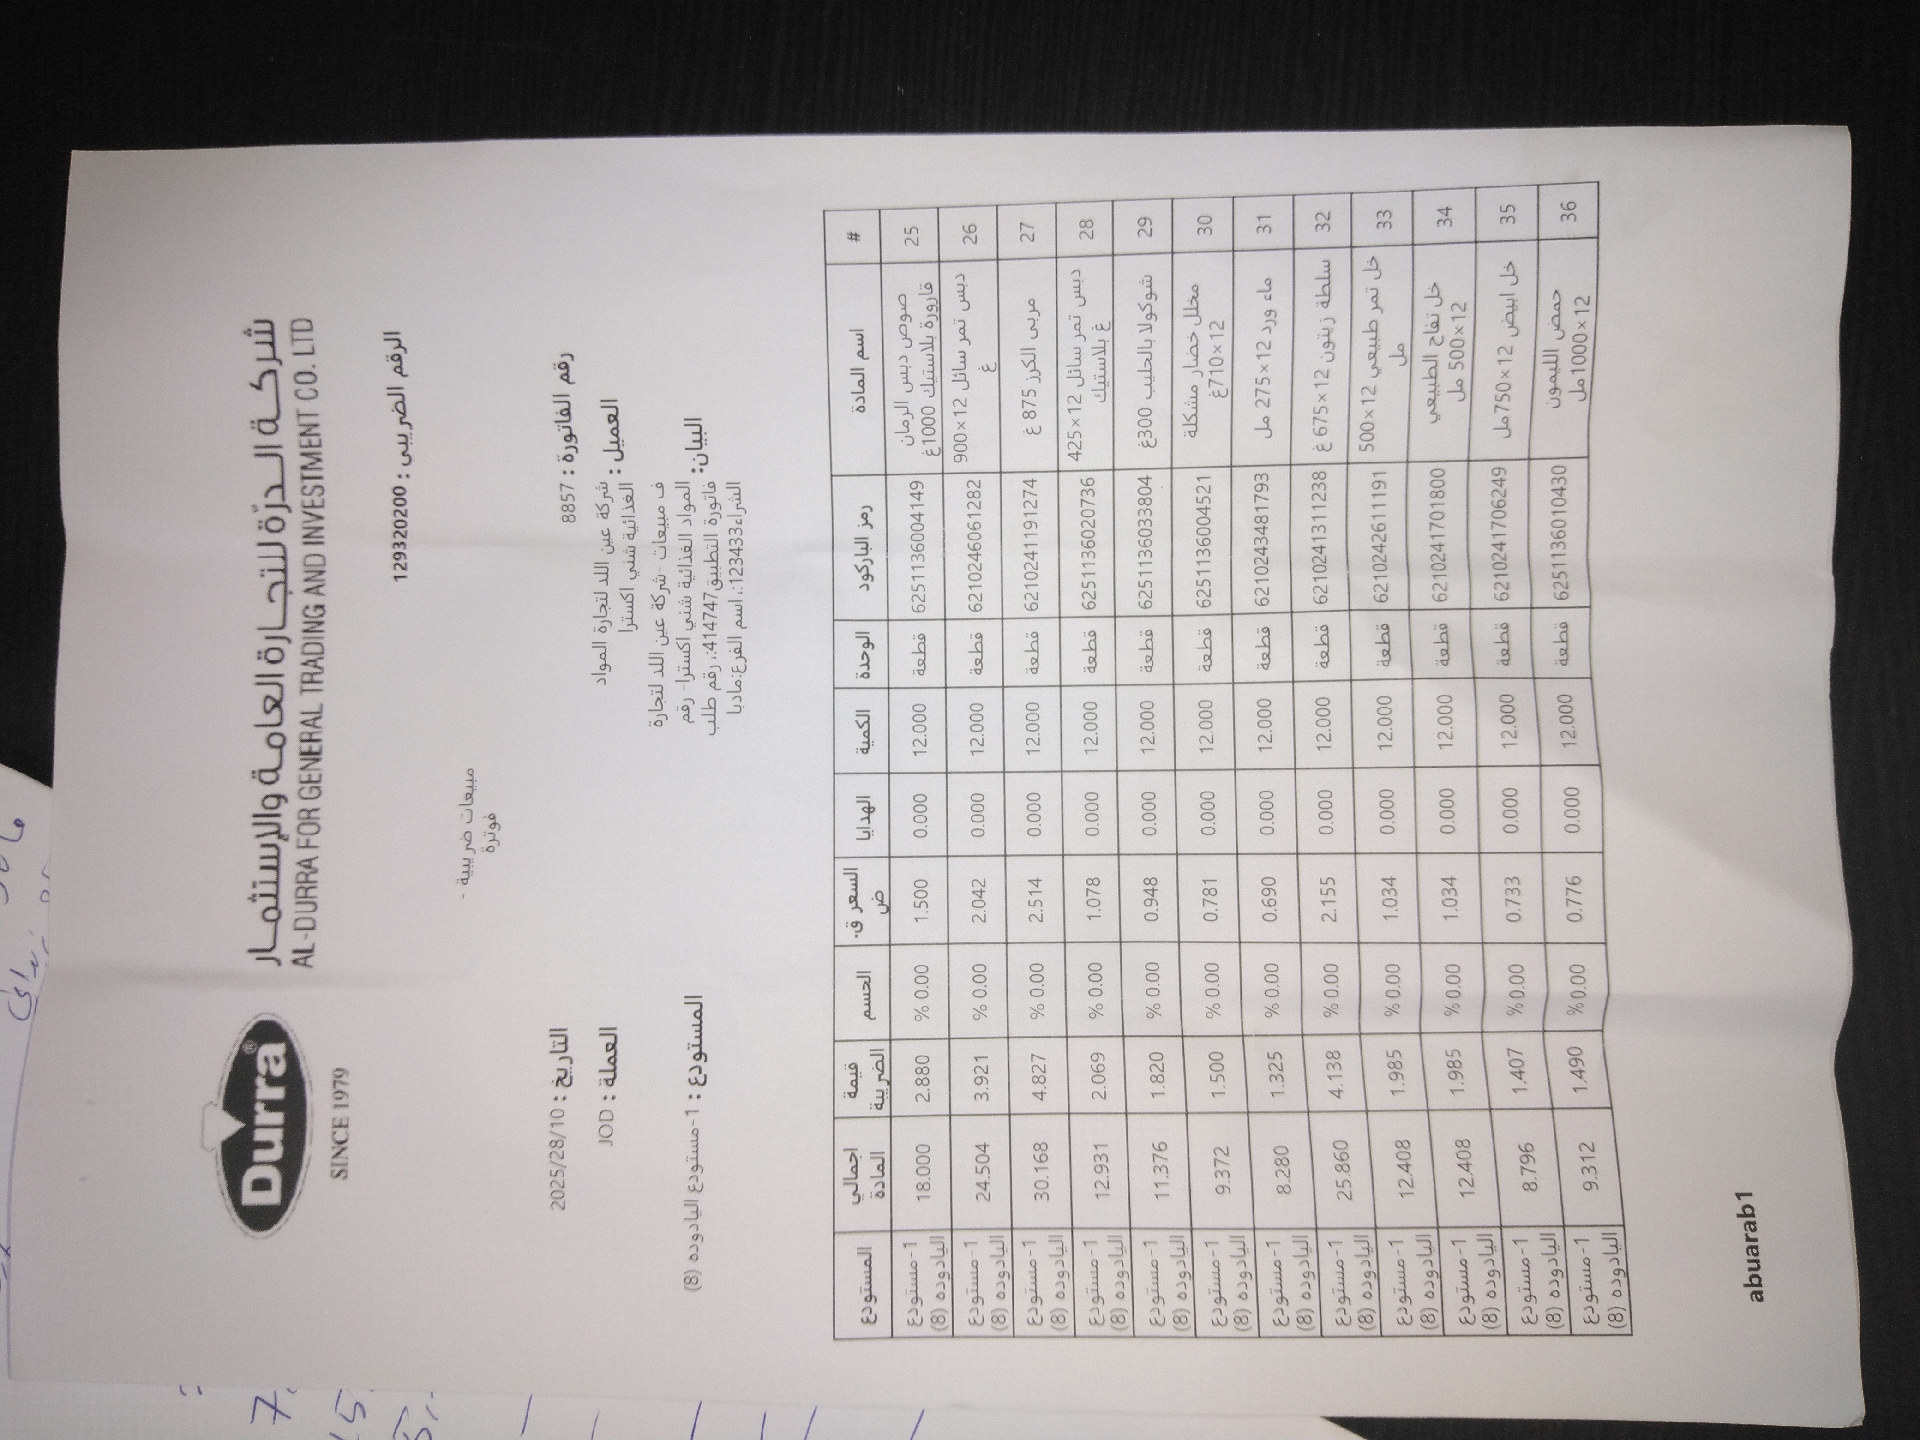 شركة الدرّة للتجارة العامة والإستثمار
AL-DURRA FOR GENERAL TRADING AND INVESTMENT CO. LTD
Durra®
SINCE 1979
الرقم الضريبي : 129320200
مبيعات ضريبية -
فوترة
رقم الفاتورة : 8857
التاريخ : 2025/28/10
العميل : شركة عين اللد لتجارة المواد
الغذائية شني اكسترا
العملة : JOD
ف مبيعات -شركة عين اللد لتجارة
المواد الغذائية شني اكسترا- رقم
البيان: فاتورة التطبيق414747:، رقم طلب
الشراء123433:، اسم الفرع:مادبا
المستودع : 1-مستودع اليادوده (8)
# اسم المادة رمز الباركود الوحدة الكمية الهدايا السعر ق. ض الحسم قيمة الضريبة اجمالي المادة المستودع
25 صوص دبس الرمان قارورة بلاستيك 1000غ 6251136004149 قطعة 12.000 0.000 1.500 % 0.00 2.880 18.000 1-مستودع اليادوده (8)
26 دبس تمر سائل 12×900 غ 6210246061282 قطعة 12.000 0.000 2.042 % 0.00 3.921 24.504 1-مستودع اليادوده (8)
27 مربى الكرز 875 غ 6210241191274 قطعة 12.000 0.000 2.514 % 0.00 4.827 30.168 1-مستودع اليادوده (8)
28 دبس تمر سائل 12×425 غ بلاستيك 6251136020736 قطعة 12.000 0.000 1.078 % 0.00 2.069 12.931 1-مستودع اليادوده (8)
29 شوكولا بالحليب 300غ 6251136033804 قطعة 12.000 0.000 0.948 % 0.00 1.820 11.376 1-مستودع اليادوده (8)
30 مخلل خضار مشكلة 12×710غ 6251136004521 قطعة 12.000 0.000 0.781 % 0.00 1.500 9.372 1-مستودع اليادوده (8)
31 ماء ورد 12×275 مل 6210243481793 قطعة 12.000 0.000 0.690 % 0.00 1.325 8.280 1-مستودع اليادوده (8)
32 سلطة زيتون 12×675 غ 6210241311238 قطعة 12.000 0.000 2.155 % 0.00 4.138 25.860 1-مستودع اليادوده (8)
33 خل تمر طبيعي 12×500 مل 6210242611191 قطعة 12.000 0.000 1.034 % 0.00 1.985 12.408 1-مستودع اليادوده (8)
34 خل تفاح الطبيعي 12×500 مل 6210241701800 قطعة 12.000 0.000 1.034 % 0.00 1.985 12.408 1-مستودع اليادوده (8)
35 خل ابيض 12×750مل 6210241706249 قطعة 12.000 0.000 0.733 % 0.00 1.407 8.796 1-مستودع اليادوده (8)
36 حمض الليمون 12×1000مل 6251136010430 قطعة 12.000 0.000 0.776 % 0.00 1.490 9.312 1-مستودع اليادوده (8)
abuarab1